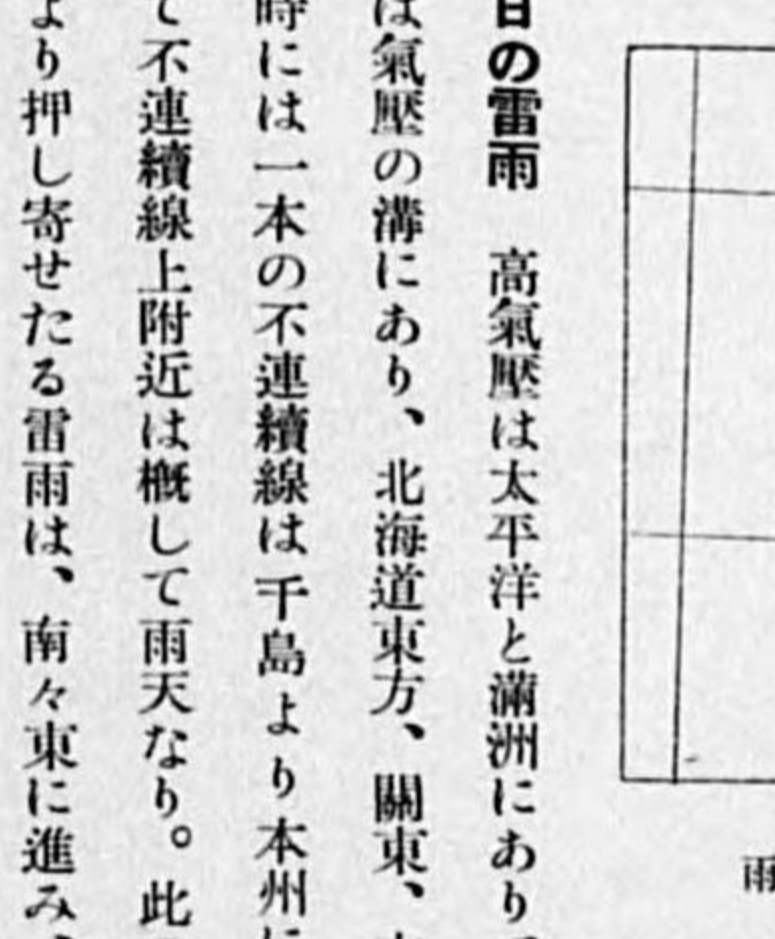 雨
日の雷雨　高氣壓は太平洋と滿洲にあり
は氣壓の溝にあり、北海道東方、關東、
時には一本の不連續線は千島より本州に
て不連續線上附近は槪して雨天なり。此
より押し寄せたる雷雨は、南々東に進み、